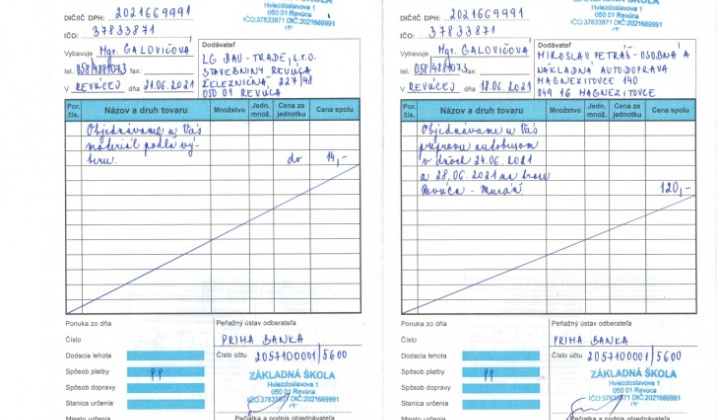 Hviezdoslavova 1
050 01 Revúca
IČO:37833871 DIČ:2021669991
DIČ/IČ DPH: 2021669991
IČO: 37833871
Vybavuje Mgr. GALOVIČOVÁ
tel. 058/4881073 fax:
V REVÚCEJ dňa 21.06.2021
Dodávateľ
LG BAU-TRADE, s.r.o.
STAVEBNINY REVÚCA
ŽELEZNIČNÁ, 227/48
050 01 REVÚCA
Por. čís. Názov a druh tovaru Množstvo Jedn. množ. Cena za jednotku Cena spolu
Objednávame u Vás
materiál podľa vý-
beru. do 14,-
Ponuka zo dňa
Číslo
Dodacia lehota
Spôsob platby PP
Spôsob dopravy
Stanica určenia
Miesto určenia
Peňažný ústav odberateľa
PRIMA BANKA
Číslo účtu 2057100001/5600
ZÁKLADNÁ ŠKOLA
Hviezdoslavova 1
050 01 Revúca
IČO:37833871 DIČ:2021669991
Pečiatka a podpis objednávateľa
ZÁKLADNÁ ŠKOLA
Hviezdoslavova 1
050 01 Revúca
IČO:37833871 DIČ:2021669991
DIČ/IČ DPH: 2021669991
IČO: 37833871
Vybavuje Mgr. GALOVIČOVÁ
tel. 058/4881073 fax:
V REVÚCEJ dňa 18.06.2021
Dodávateľ
MIROSLAV PETRÁŠ-OSOBNÁ A
NÁKLADNÁ AUTODOPRAVA
MAGNEZITOVCE 140
049 16 MAGNEZITOVCE
Por. čís. Názov a druh tovaru Množstvo Jedn. množ. Cena za jednotku Cena spolu
Objednávame u Vás
prepravu autobusom
v dňoch 24.06.2021
a 28.06.2021 na trase
Revúca - Muráň 120,-
Ponuka zo dňa
Číslo
Dodacia lehota
Spôsob platby PP
Spôsob dopravy
Stanica určenia
Miesto určenia
Peňažný ústav odberateľa
PRIMA BANKA
Číslo účtu 2057100001/5600
ZÁKLADNÁ ŠKOLA
Hviezdoslavova 1
050 01 Revúca
IČO:37833871 DIČ:2021669991
Pečiatka a podpis objednávateľa